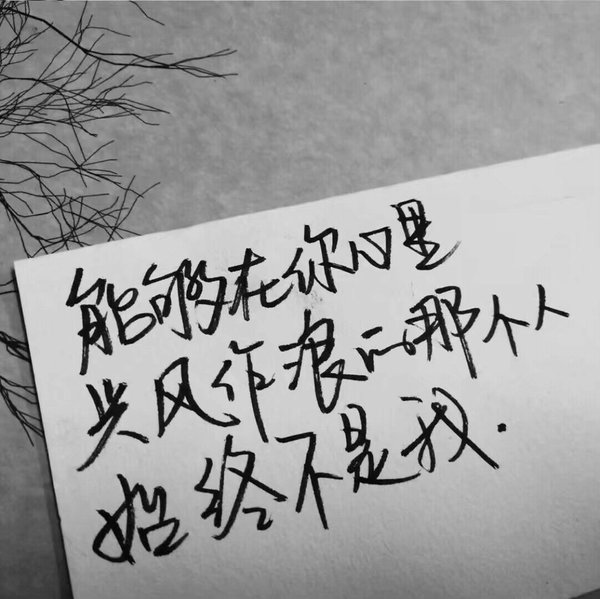 能够在你心里
兴风作浪的那个人
始终不是我.